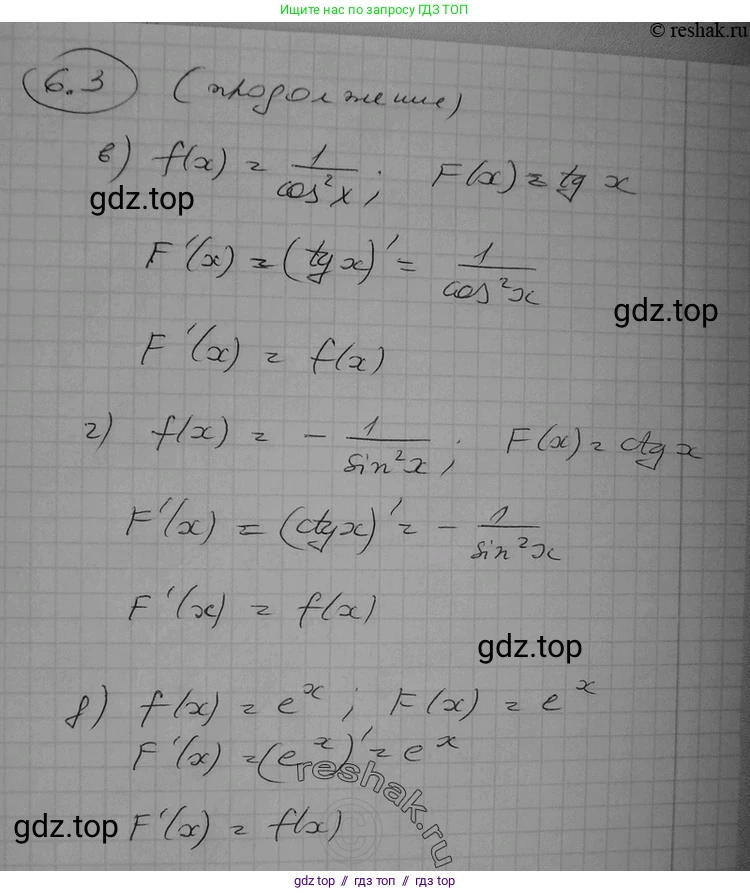 Ищите нас по запросу ГДЗ ТОП
© reshak.ru
6.3 (продолжение)
в) f(x) = 1/cos²x; F(x) = tg x
gdz.top
F'(x) = (tg x)' = 1/cos²x
gdz.top
F'(x) = f(x)
г) f(x) = - 1/sin²x; F(x) = ctg x
F'(x) = (ctg x)' = - 1/sin²x
F'(x) = f(x)
gdz.top
д) f(x) = eˣ; F(x) = eˣ
F'(x) = (eˣ)' = eˣ
reshak.ru
gdz.top F'(x) = f(x)
gdz.top // гдз топ // гдз top